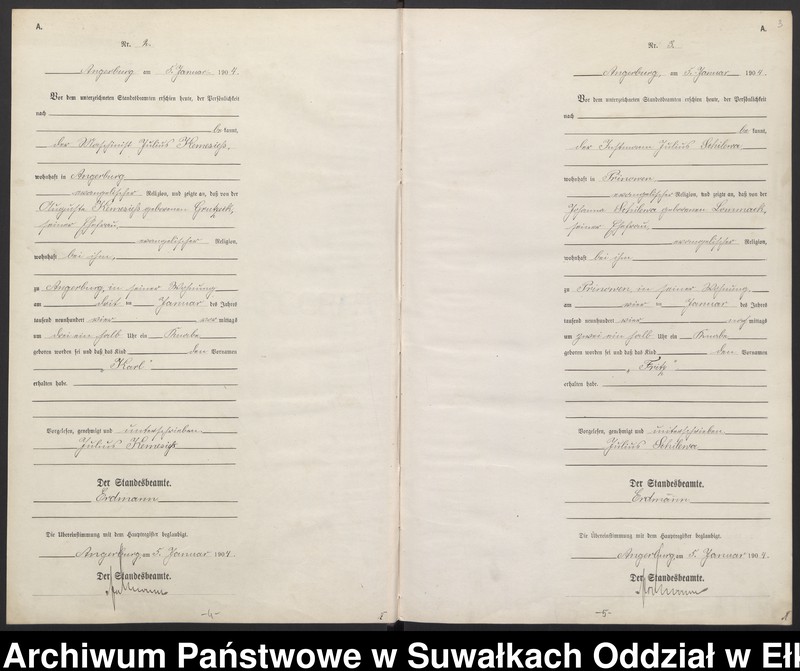 A.
Nr. 2.
Angerburg am 5. Januar 1904.
Vor dem unterzeichneten Standesbeamten erschien heute, der Persönlichkeit
nach
be kannt,
der Maschinist Julius
wohnhaft in Angerburg
evangelischer Religion, und zeigte an, daß von der
Auguste geborenen
seiner Ehefrau,
evangelischer Religion,
wohnhaft bei ihm,
zu Angerburg, in seiner Wohnung
am drei ten Januar des Jahres
tausend neunhundert vier vor mittags
um drei ein halb Uhr ein Knabe
geboren worden sei und daß das Kind den Vornamen
„Karl“
erhalten habe.
Vorgelesen, genehmigt und unterschrieben
Julius
Der Standesbeamte.
Erdmann
Die Übereinstimmung mit dem Hauptregister beglaubigt.
Angerburg am 5. Januar 1904.
Der Standesbeamte.
-4-
3
A.
Nr. 3.
Angerburg, am 5. Januar 1904.
Vor dem unterzeichneten Standesbeamten erschien heute, der Persönlichkeit
nach
be kannt,
der Instmann Julius Schilewa
wohnhaft in Prinowen
evangelischer Religion, und zeigte an, daß von der
Johanna Schilewa geborenen
seiner Ehefrau,
evangelischer Religion,
wohnhaft bei ihm
zu Prinowen, in seiner Wohnung
am vier ten Januar des Jahres
tausend neunhundert vier nach mittags
um zwei ein halb Uhr ein Knabe
geboren worden sei und daß das Kind den Vornamen
„Fritz“
erhalten habe.
Vorgelesen, genehmigt und unterschrieben
Julius Schilewa
Der Standesbeamte.
Erdmann
Die Übereinstimmung mit dem Hauptregister beglaubigt.
Angerburg, am 5. Januar 1904.
Der Standesbeamte.
-5-
Archiwum Państwowe w Suwałkach Oddział w Eł